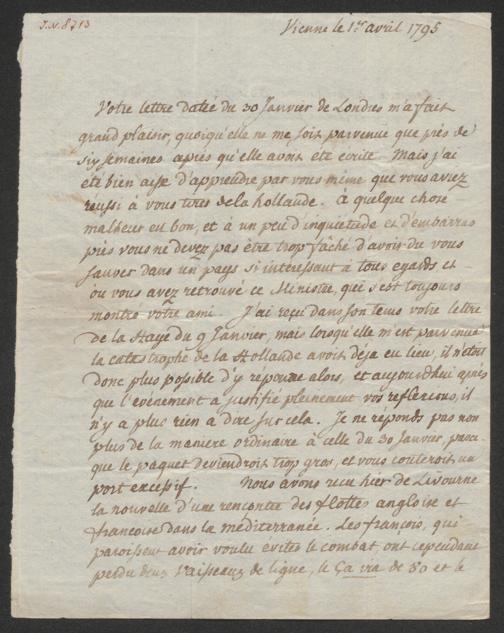 J.N. 8713
Vienne le 1.er avril 1795
Votre lettre datée du 30 Janvier de Londres m'a fait
grand plaisir, quoiqu'elle ne me soit parvenue que près de
six semaines après qu'elle avoit été écrite. Mais j'ai
été bien aise d'apprendre par vous même que vous aviez
reussi à vous tirer de la hollande. A quelque chose
malheur est bon, et à un peu d'inquietude et d'embarras
près vous ne devez pas être trop fâché d'avoir du vous
sauver dans un pays si interessant à tous egards et
où vous avez retrouvé ce Ministre, qui s'est toujours
montré votre ami. J'ai reçu dans son tems votre lettre
de la Haye du 9 Janvier, mais lorsqu'elle m'est parvenue
la catastrophe de la Hollande avoit déja eu lieu, il n'étoit
donc plus possible d'y répondre alors, et aujourdhui après
que l'evénement a justifié pleinement vos reflexions, il
n'y a plus rien a dire sur cela. Je ne réponds pas non
plus de la maniere ordinaire à celle du 30 Janvier, parce
que le paquet deviendroit trop gros, et vous couteroit un
port excessif. Nous avons recu hier de Livourne
la nouvelle d'une rencontre des flottes angloise et
francoise dans la méditerranée. Les françois, qui
paroissent avoir voulu éviter le combat ont cependant
perdu deux vaisseaux de ligne, le Ça ira de 80 et le